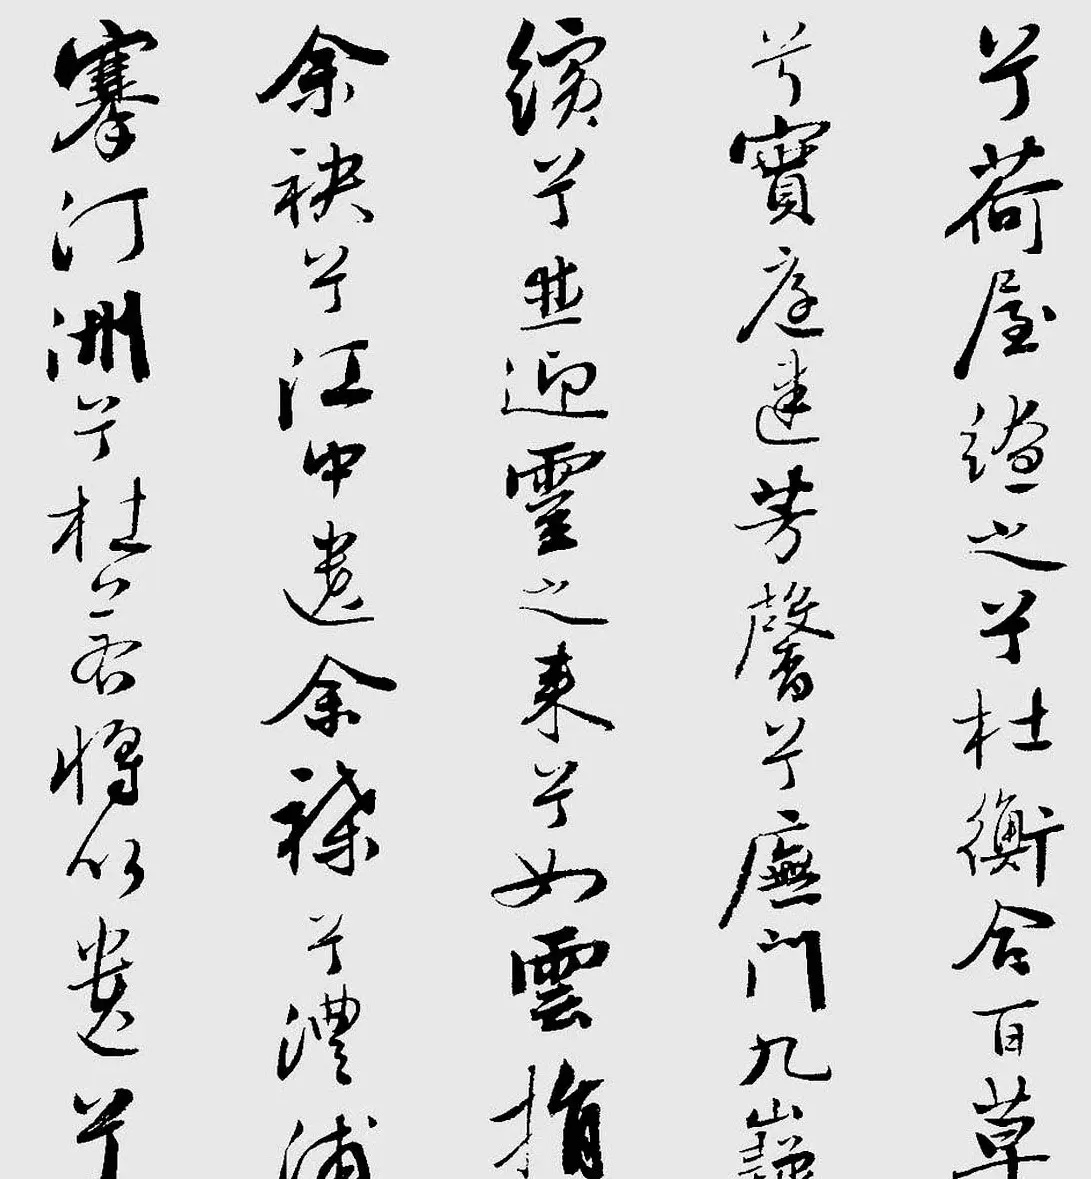 兮荷屋繚之兮杜衡合百草
兮實庭建芳馨兮廡門九嶷
繽兮並迎靈之來兮如雲捐
余袂兮江中遺余褋兮澧浦
搴汀洲兮杜若將以遺兮